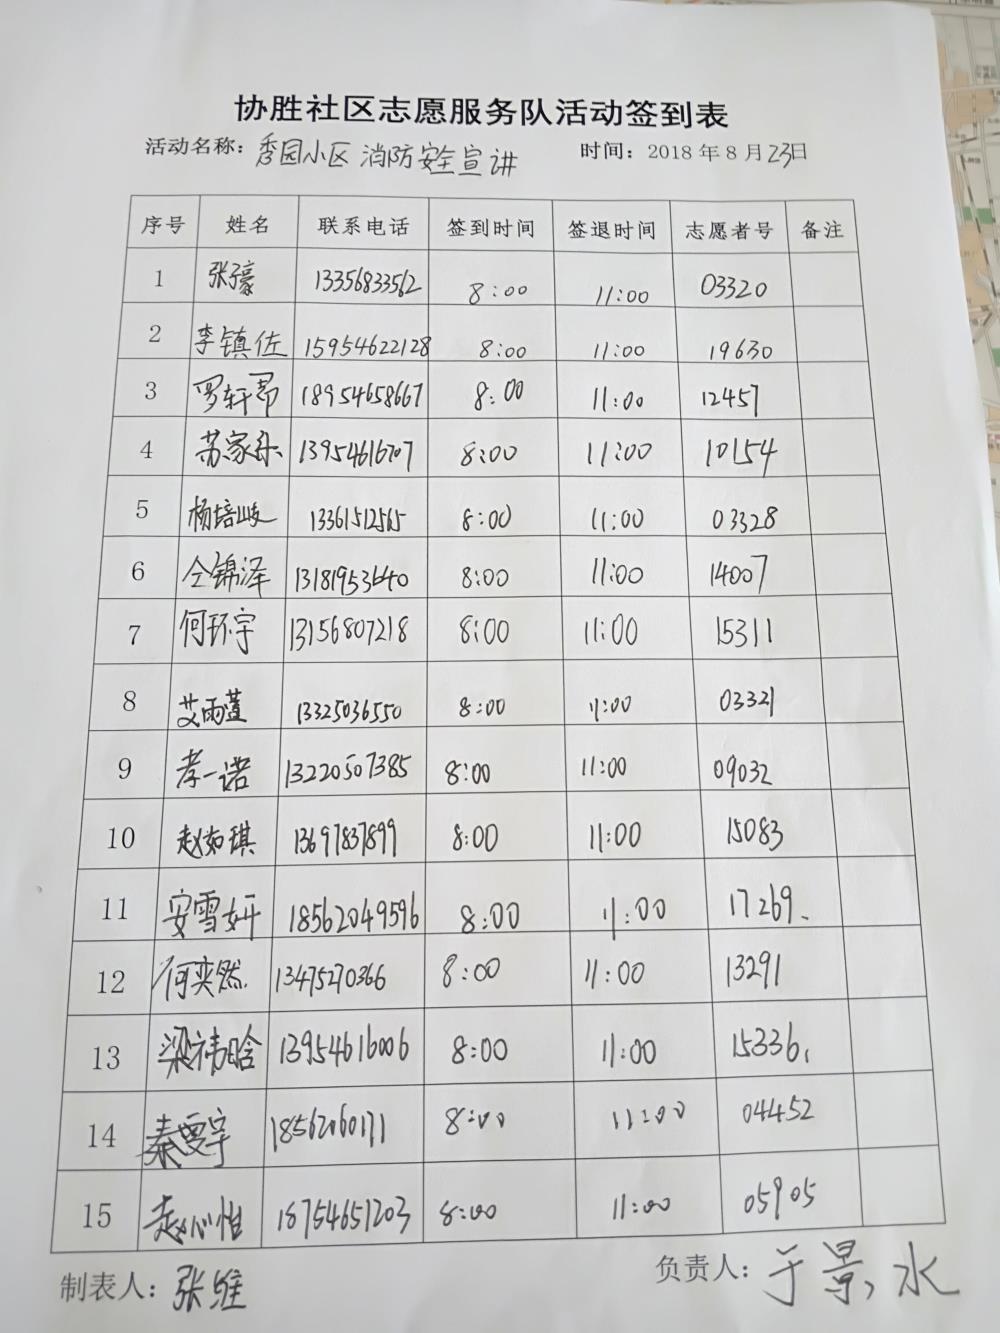 协胜社区志愿服务队活动签到表
活动名称：秀园小区 消防安全宣讲 时间：2018年8月23日
序号 姓名 联系电话 签到时间 签退时间 志愿者号 备注
1 张子豪 13356833562 8:00 11:00 03320
2 李镇佐 15954622128 8:00 11:00 19630
3 罗轩昂 18954658667 8:00 11:00 12457
4 苏家乐 13954616707 8:00 11:00 10154
5 杨培岐 13361512565 8:00 11:00 03328
6 仝锦泽 13181953640 8:00 11:00 14007
7 何环宇 13156807218 8:00 11:00 15311
8 艾雨萱 13325036550 8:00 11:00 03321
9 李一诺 13220507385 8:00 11:00 09032
10 赵如琪 13697837899 8:00 11:00 15083
11 安雪妍 18562049596 8:00 11:00 17269
12 何奕然 13475270366 8:00 11:00 13291
13 梁祎晗 13954616006 8:00 11:00 15336
14 8:00 11:00 04452
15 赵心怡 18754651203 8:00 11:00 05905
制表人：张维 负责人：于景水